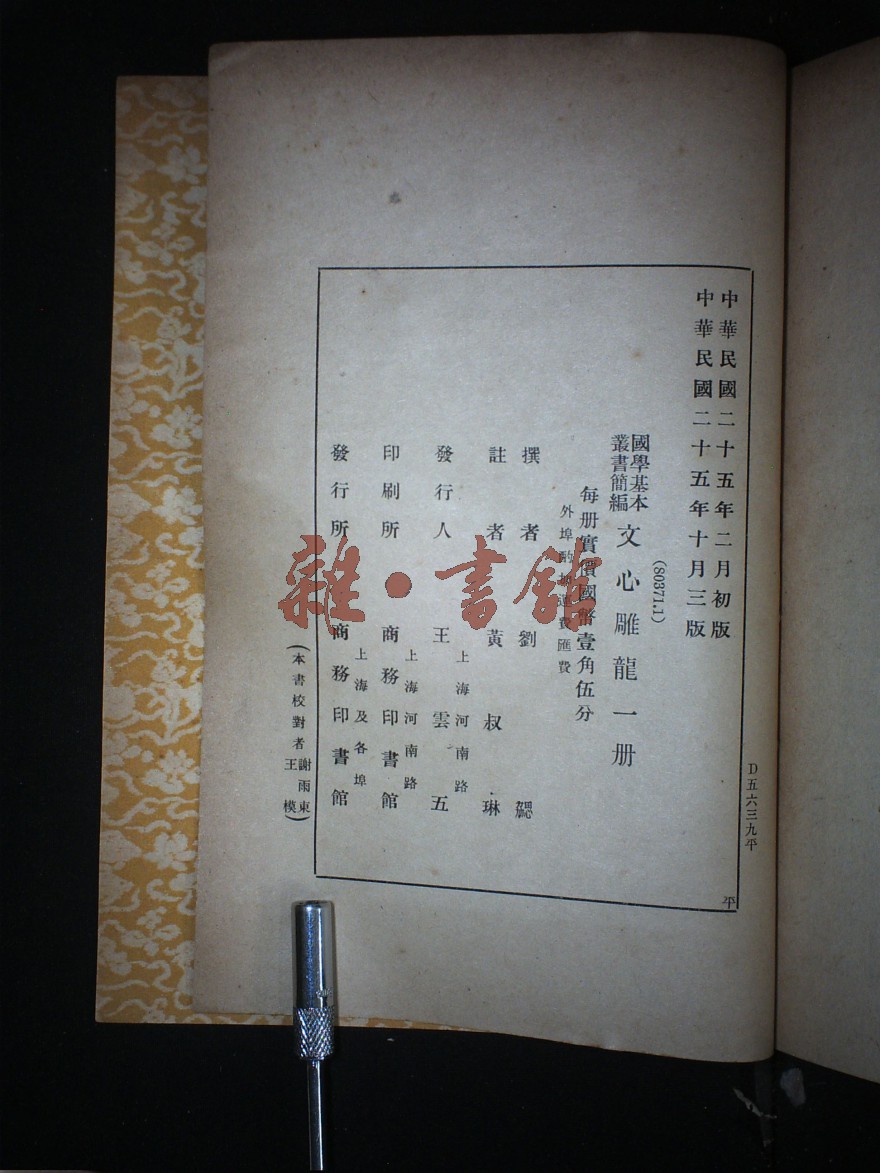 中華民國二十五年二月初版
中華民國二十五年十月三版
國學基本
叢書簡編
文心雕龍一册
(80371.1)
每册實價國幣壹角伍分
外埠酌加運費匯費
撰者劉勰
註者黃叔琳
發行人王雲五
上海河南路
印刷所商務印書館
上海河南路
發行所商務印書館
上海及各埠
(本書校對者謝雨東王模)
D五六三九平
平
雜·書館